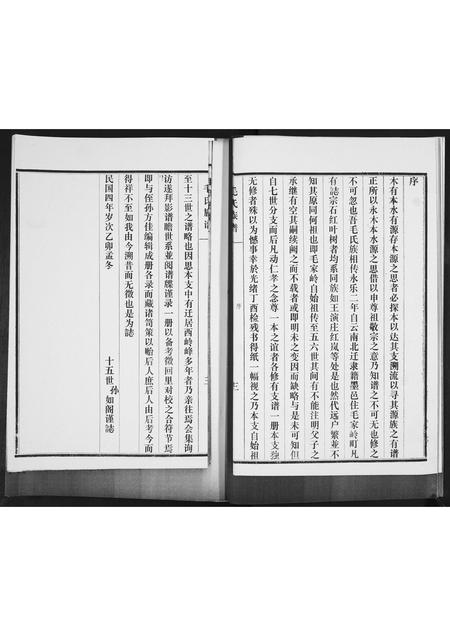 序
木有本水有源存本源之思者必探本以达其支溯流以寻其源族之有谱
正所以永木本水源之思借以申尊祖敬宗之意乃知谱之不可无也修之
不可忽也吾毛氏族相传永乐二年自云南北迁隶籍墨邑住毛家岭町凡
有誌宗石红叶树者均系同族如王演庄红岚等处是也然代远户繁并不
知其原同何祖也即毛家岭自始祖传至五六世其间有不能注明父子之
承继有空其嗣续阙之而不载者或即明未之变因而缺略与是未可知但
自七世分支而后凡动仁孝之念尊一本之谊者各修有支谱一册本支独
无修者殊以为憾事幸於光绪丁酉检残书得纸一幅视之乃本支自始祖
毛氏族谱
序
三
至十三世之谱略也因思本支中有迁居西岭峰多年者乃亲往焉会集询
访遂拜影谱瞻世系並阅谱牒谨录一册以备考徵回里对校之合符节焉
即与侄孙方佳编辑成册各录而藏诸笥策以贻后人庶后人由后考今而
得祥不至如我由今溯昔而无徵也是为誌
十五世孙如阁谨誌
民国四年岁次乙卯孟冬